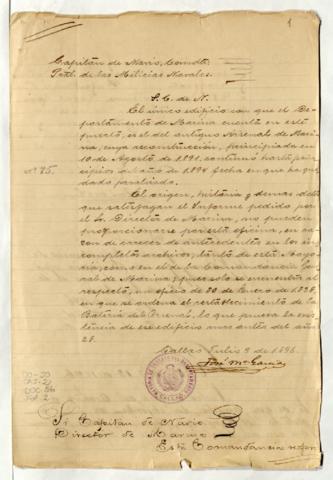 1
Capitán de Navío, Comdte.
Gral. de las Milicias Navales.
S. C. de N.
El único edificio con que el De-
partamento de Marina cuenta en este
puerto, es el del antiguo Arsenal de Mari-
na, cuya reconstrucción, principiada en
10 de Agosto de 1891, continuó hasta prin-
cipios del año de 1894 fecha en que ha que-
dado paralizada.
Nº 75.
El origen, historia y demas datos
que satisfagan el Informe pedido por
el Sr. Director de Marina, no pueden
proporcionarse por esta oficina, en ra-
zon de carecer de antecedentes en los in-
completos archivos, tanto de esta Mayo-
ría, como en el de la Comandancia Gene-
ral de Marina; pues solo se encuentra al
respecto, un oficio de 30 de Enero de 1828,
en que se ordena el restablecimiento de la
Batería del Arsenal, lo que prueba la exis-
tencia de ese edificio mas antes del año
28.
Callao Julio 9 de 1896.
José M. García
Sr. Capitan de Navío
Director de Marina
Esta Comandancia